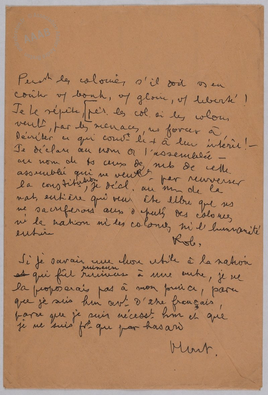 Périssent les colonies, s'il doit vs en
coûter vt bonh, vt gloire, vt liberté!
Je le répète, périss les col si les colons
veulent, par les menaces, ns forcer à
décréter ce qui convit le + à leur intérêt! –
Je déclare au nom de l'assemblée –
au nom de ts ceux de cette
assemblée qui ne veulent pas renverser
la constitution, je décl. au nom de la
nation entière qui veut être libre que ns
ne sacrifierons aux députés des colonies,
ni la nation ni les colonies ni l'humanité
entière
Rob.
Si je savais une chose utile à la nation
qui fût ruineuse à une autre, je ne
la proposerais pas à mon prince, parce
que je suis hom avt d'être français,
parce que je suis nécesst hom et que
je ne suis fçs que par hasard
Mont.